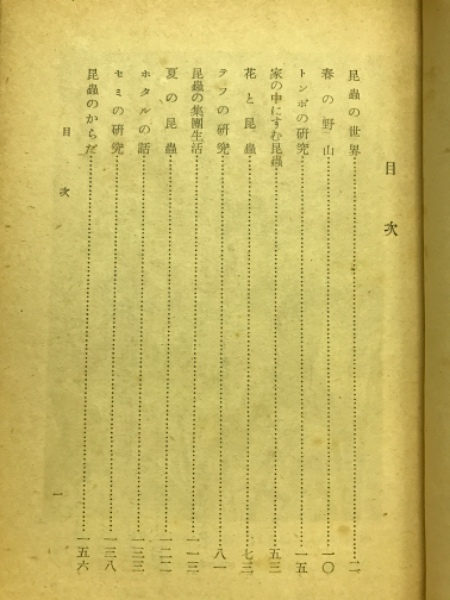 目次
昆蟲の世界……二
春の野山……一〇
トンボの研究……一五
家の中にすむ昆蟲……五三
花と昆蟲……七三
テフの研究……八一
昆蟲の集團生活……一一三
夏の昆蟲……一二二
ホタルの話……一三三
セミの研究……一三八
昆蟲のからだ……一五六
目次
一